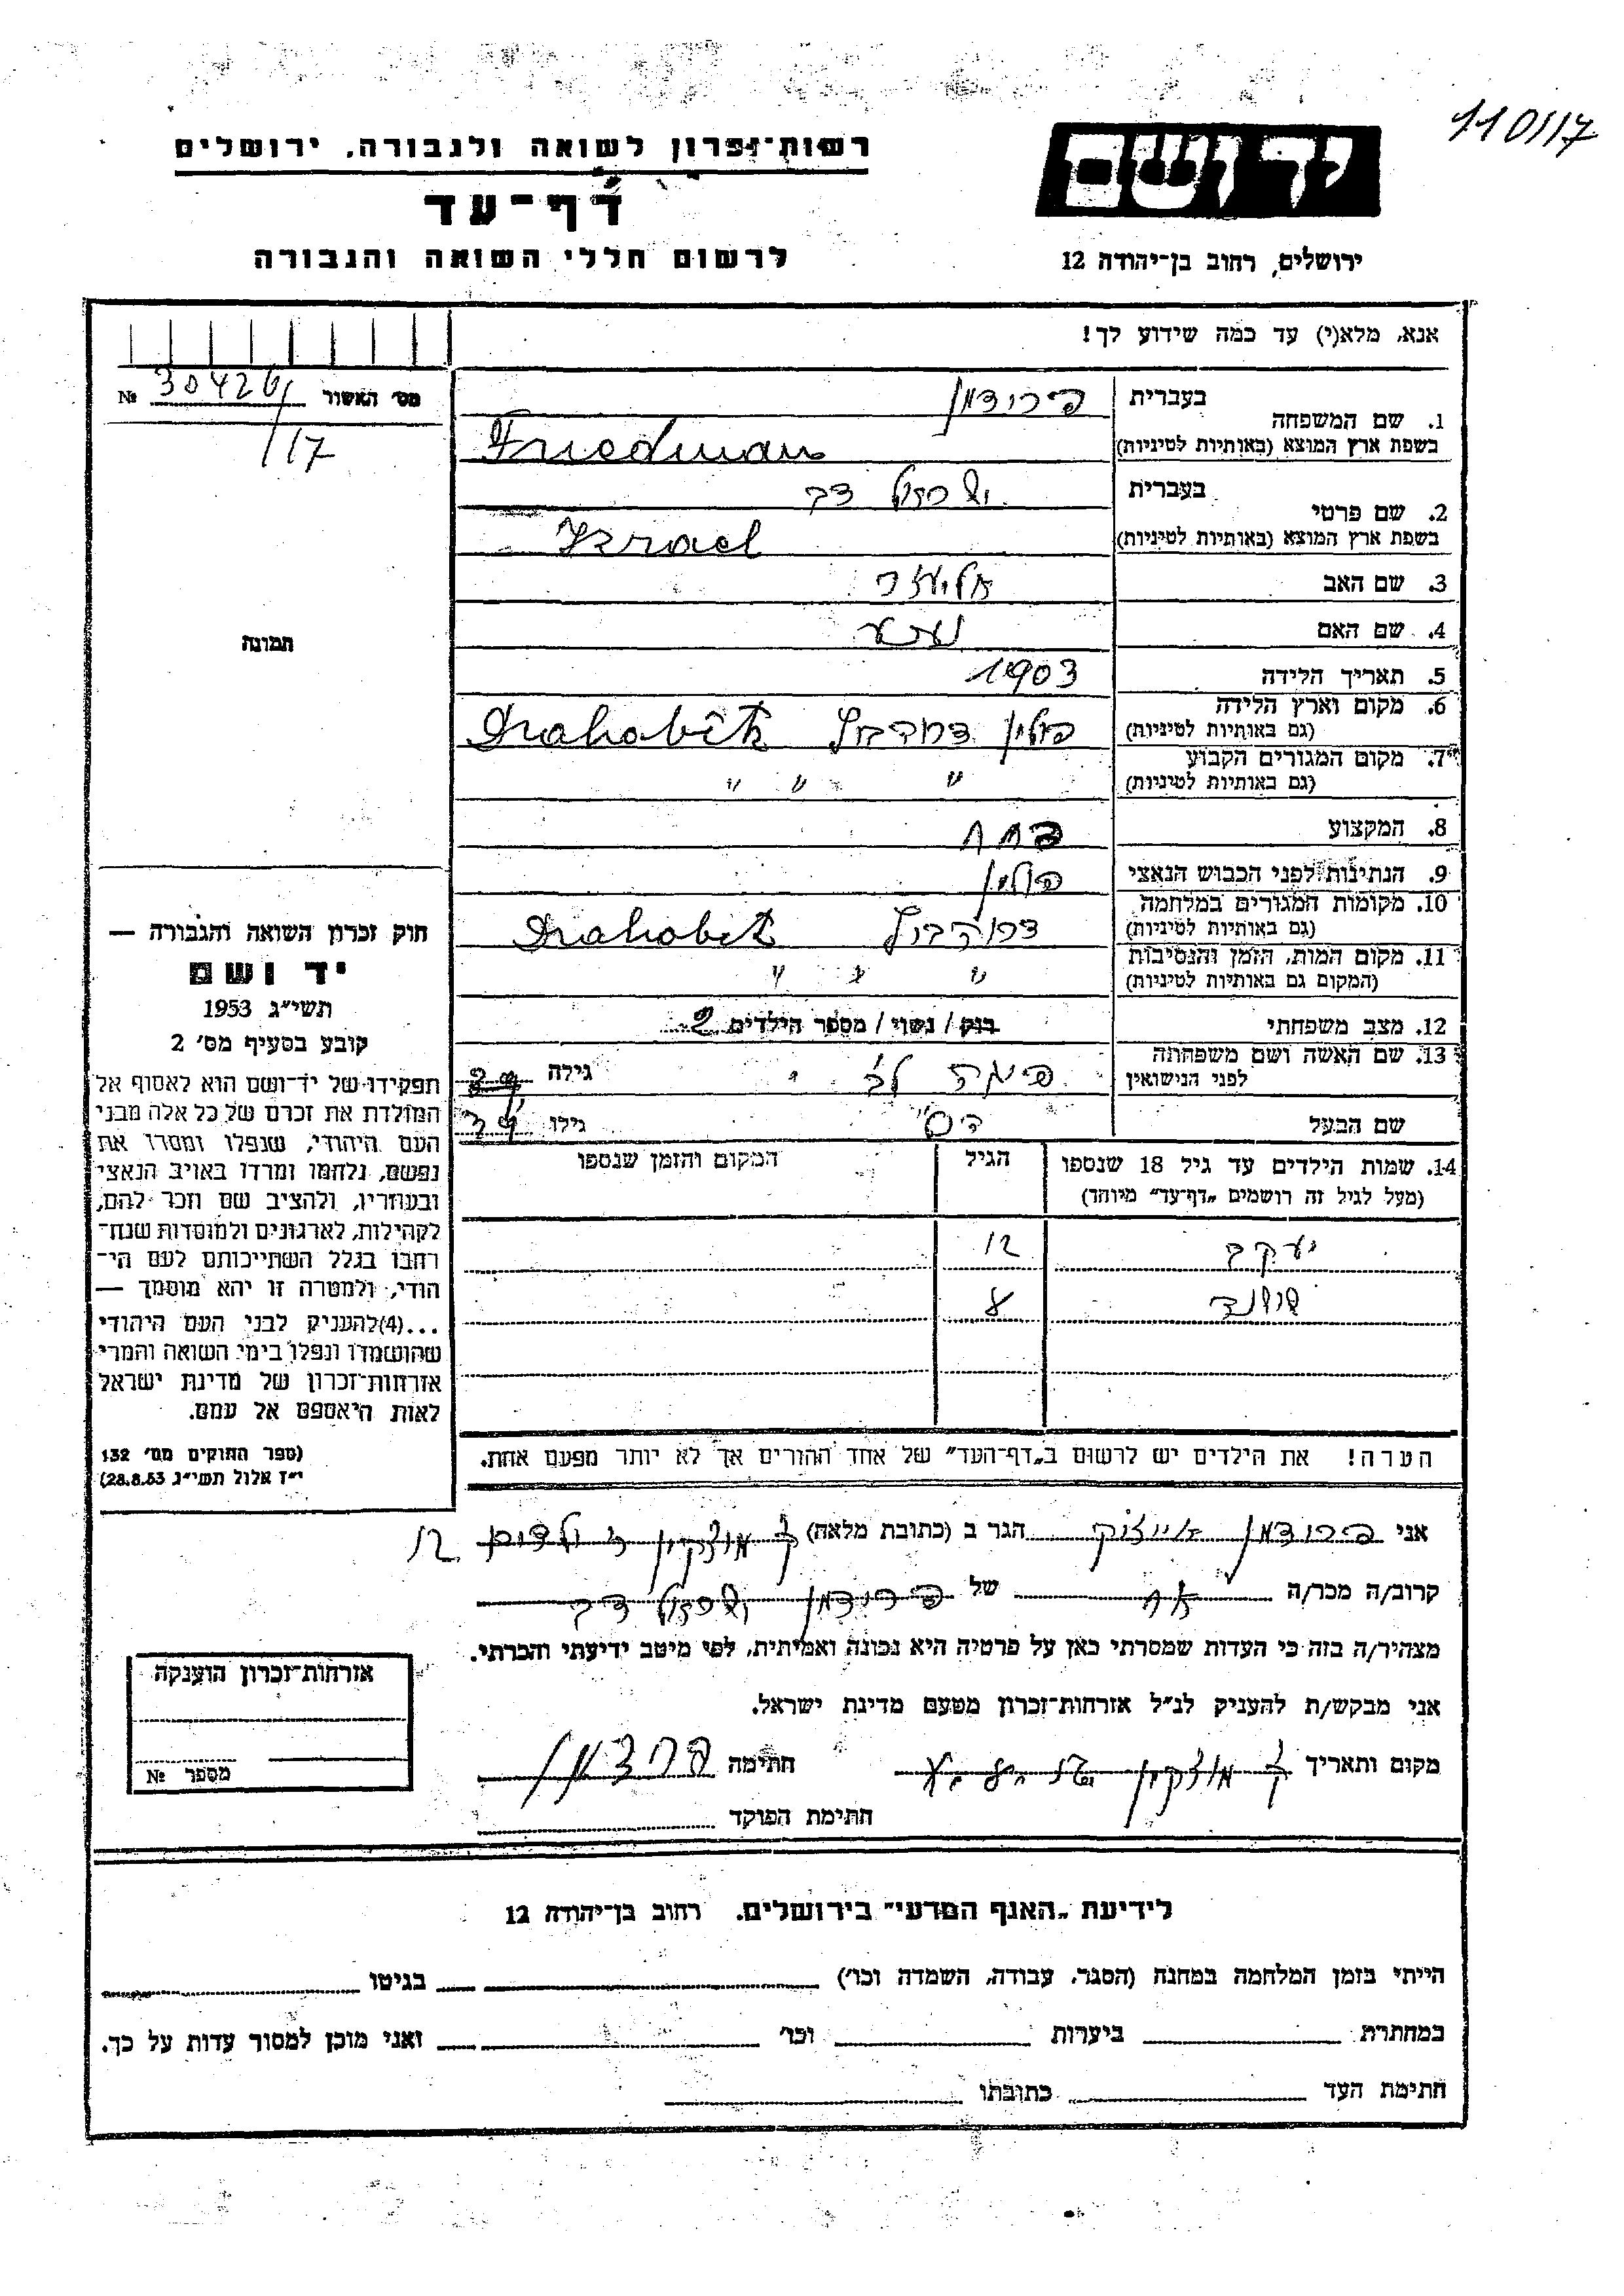 110/17
רשות־זכרון לשואה ולגבורה, ירושלים
דף־עד
לרשום חללי השואה והגבורה
יד ושם
ירושלים, רחוב בן־יהודה 12
אנא, מלא(י) עד כמה שידוע לך!
מס׳ האשור 30426 №
/17
1. שם המשפחה
בעברית פרידמן
בשפת ארץ המוצא (באותיות לטיניות) Friedman
2. שם פרטי
בעברית ישראל דב
בשפת ארץ המוצא (באותיות לטיניות) Izrael
3. שם האב אליעזר
4. שם האם
5. תאריך הלידה 1903
6. מקום וארץ הלידה
(גם באותיות לטיניות) פולין Drahobitz
7. מקום המגורים הקבוע
(גם באותיות לטיניות) " " "
8. המקצוע
9. הנתינות לפני הכבוש הנאצי פולין
10. מקומות המגורים במלחמה
(גם באותיות לטיניות) Drahobitz
11. מקום המות, הזמן והנסיבות
(המקום גם באותיות לטיניות) " " "
12. מצב משפחתי רווק / נשוי / מספר הילדים 2
13. שם האשה ושם משפחתה
לפני הנישואין גילה
שם הבעל גילו
14. שמות הילדים עד גיל 18 שנספו
(מעל לגיל זה רושמים „דף־עד" מיוחד)
הגיל
המקום והזמן שנספו
יעקב 12
הערה! את הילדים יש לרשום ב„דף־העד" של אחד ההורים אך לא יותר מפעם אחת.
תמונה
חוק זכרון השואה והגבורה —
יד ושם
תשי״ג 1953
קובע בסעיף מס׳ 2
תפקידו של יד־ושם הוא לאסוף אל
המולדת את זכרם של כל אלה מבני
העם היהודי, שנפלו ומסרו את
נפשם, נלחמו ומרדו באויב הנאצי
ובעוזריו, ולהציב שם וזכר להם,
לקהילות, לארגונים ולמוסדות שנח־
רבו בגלל השתייכותם לעם הי־
הודי, ולמטרה זו יהא מוסמך —
...(4)להעניק לבני העם היהודי
שהושמדו ונפלו בימי השואה והמרי
אזרחות־זכרון של מדינת ישראל
לאות היאספם אל עמם.
(ספר החוקים מס׳ 132
י״ז אלול תשי״ג 28.8.53)
אני פרידמן הגר ב (כתובת מלאה) ק מוצקין 12
קרוב/ה מכר/ה אח של פרידמן ישראל דב
מצהיר/ה בזה כי העדות שמסרתי כאן על פרטיה היא נכונה ואמיתית, לפי מיטב ידיעתי והכרתי.
אני מבקש/ת להעניק לנ״ל אזרחות־זכרון מטעם מדינת ישראל.
מקום ותאריך ק מוצקין חתימה פרידמן
חתימת הפוקד
אזרחות־זכרון הוענקה
מספר №
לידיעת „האגף המדעי" בירושלים, רחוב בן־יהודה 12
הייתי בזמן המלחמה במחנה (הסגר, עבודה, השמדה וכו׳) בגיטו
במחתרת ביערות וכו׳ ואני מוכן למסור עדות על כך.
חתימת העד כתובתו